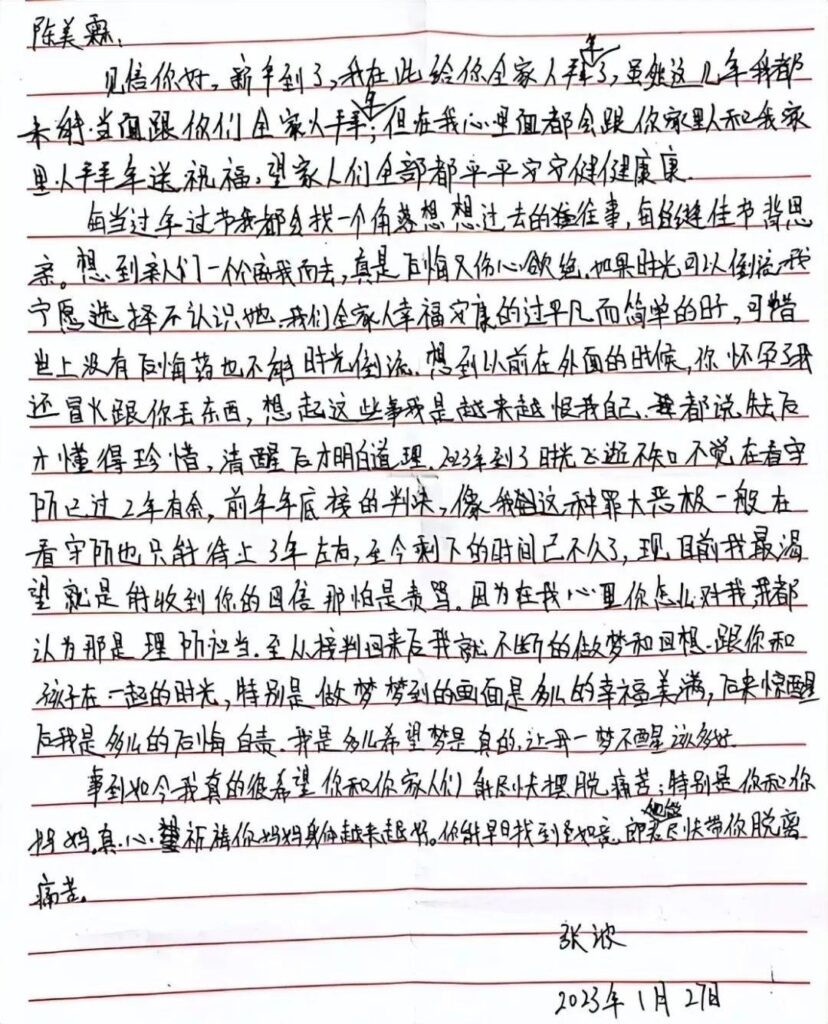 陈美霖：
见信你好，新年到了，我在此给你全家人拜年了，虽然这几年我都
未能当面跟你们全家人拜年；但在我心里面都会跟你家里人和我家
里人拜年送祝福，望家人们全部都平平安安健健康康.
每当过年过节我都会找一个角落想想过去的往事，每逢佳节背思
亲。想到亲人们一个个离我而去，真是后悔又伤心欲绝.如果时光可以倒流我
宁愿选择不认识她.我们全家人幸福安康的过平凡而简单的日子，可惜
世上没有后悔药也不能时光倒流.想到以前在外面的时候，你怀孕了我
还冒火跟你丢东西，想起这些事我是越来越恨我自己.都说失去后
才懂得珍惜，清醒后才明白道理.2023年到了时光飞逝不知不觉在看守
所已过2年有余，前年年底接的判决，像我这种罪大恶极一般在
看守所也只能待上3年左右，至今剩下的时间已不久了，现目前我最渴
望就是能收到你的回信那怕是责骂.因为在我心里你怎么对我，我都
认为那是理所应当.至从接判回来后我就不断的做梦和回想.跟你和
孩子在一起的时光，特别是做梦梦到的画面是多么的幸福美满，后来惊醒
后我是多么的后悔自责.我是多么希望梦是真的，让我一梦不醒该多好.
事到如今我真的很希望你和你家人们能尽快摆脱痛苦；特别是你和你
妈妈.真心祈祷你妈妈身体越来越好。你能早日找到如意郎君尽快带你脱离
痛苦。
张波
2023年1月27日